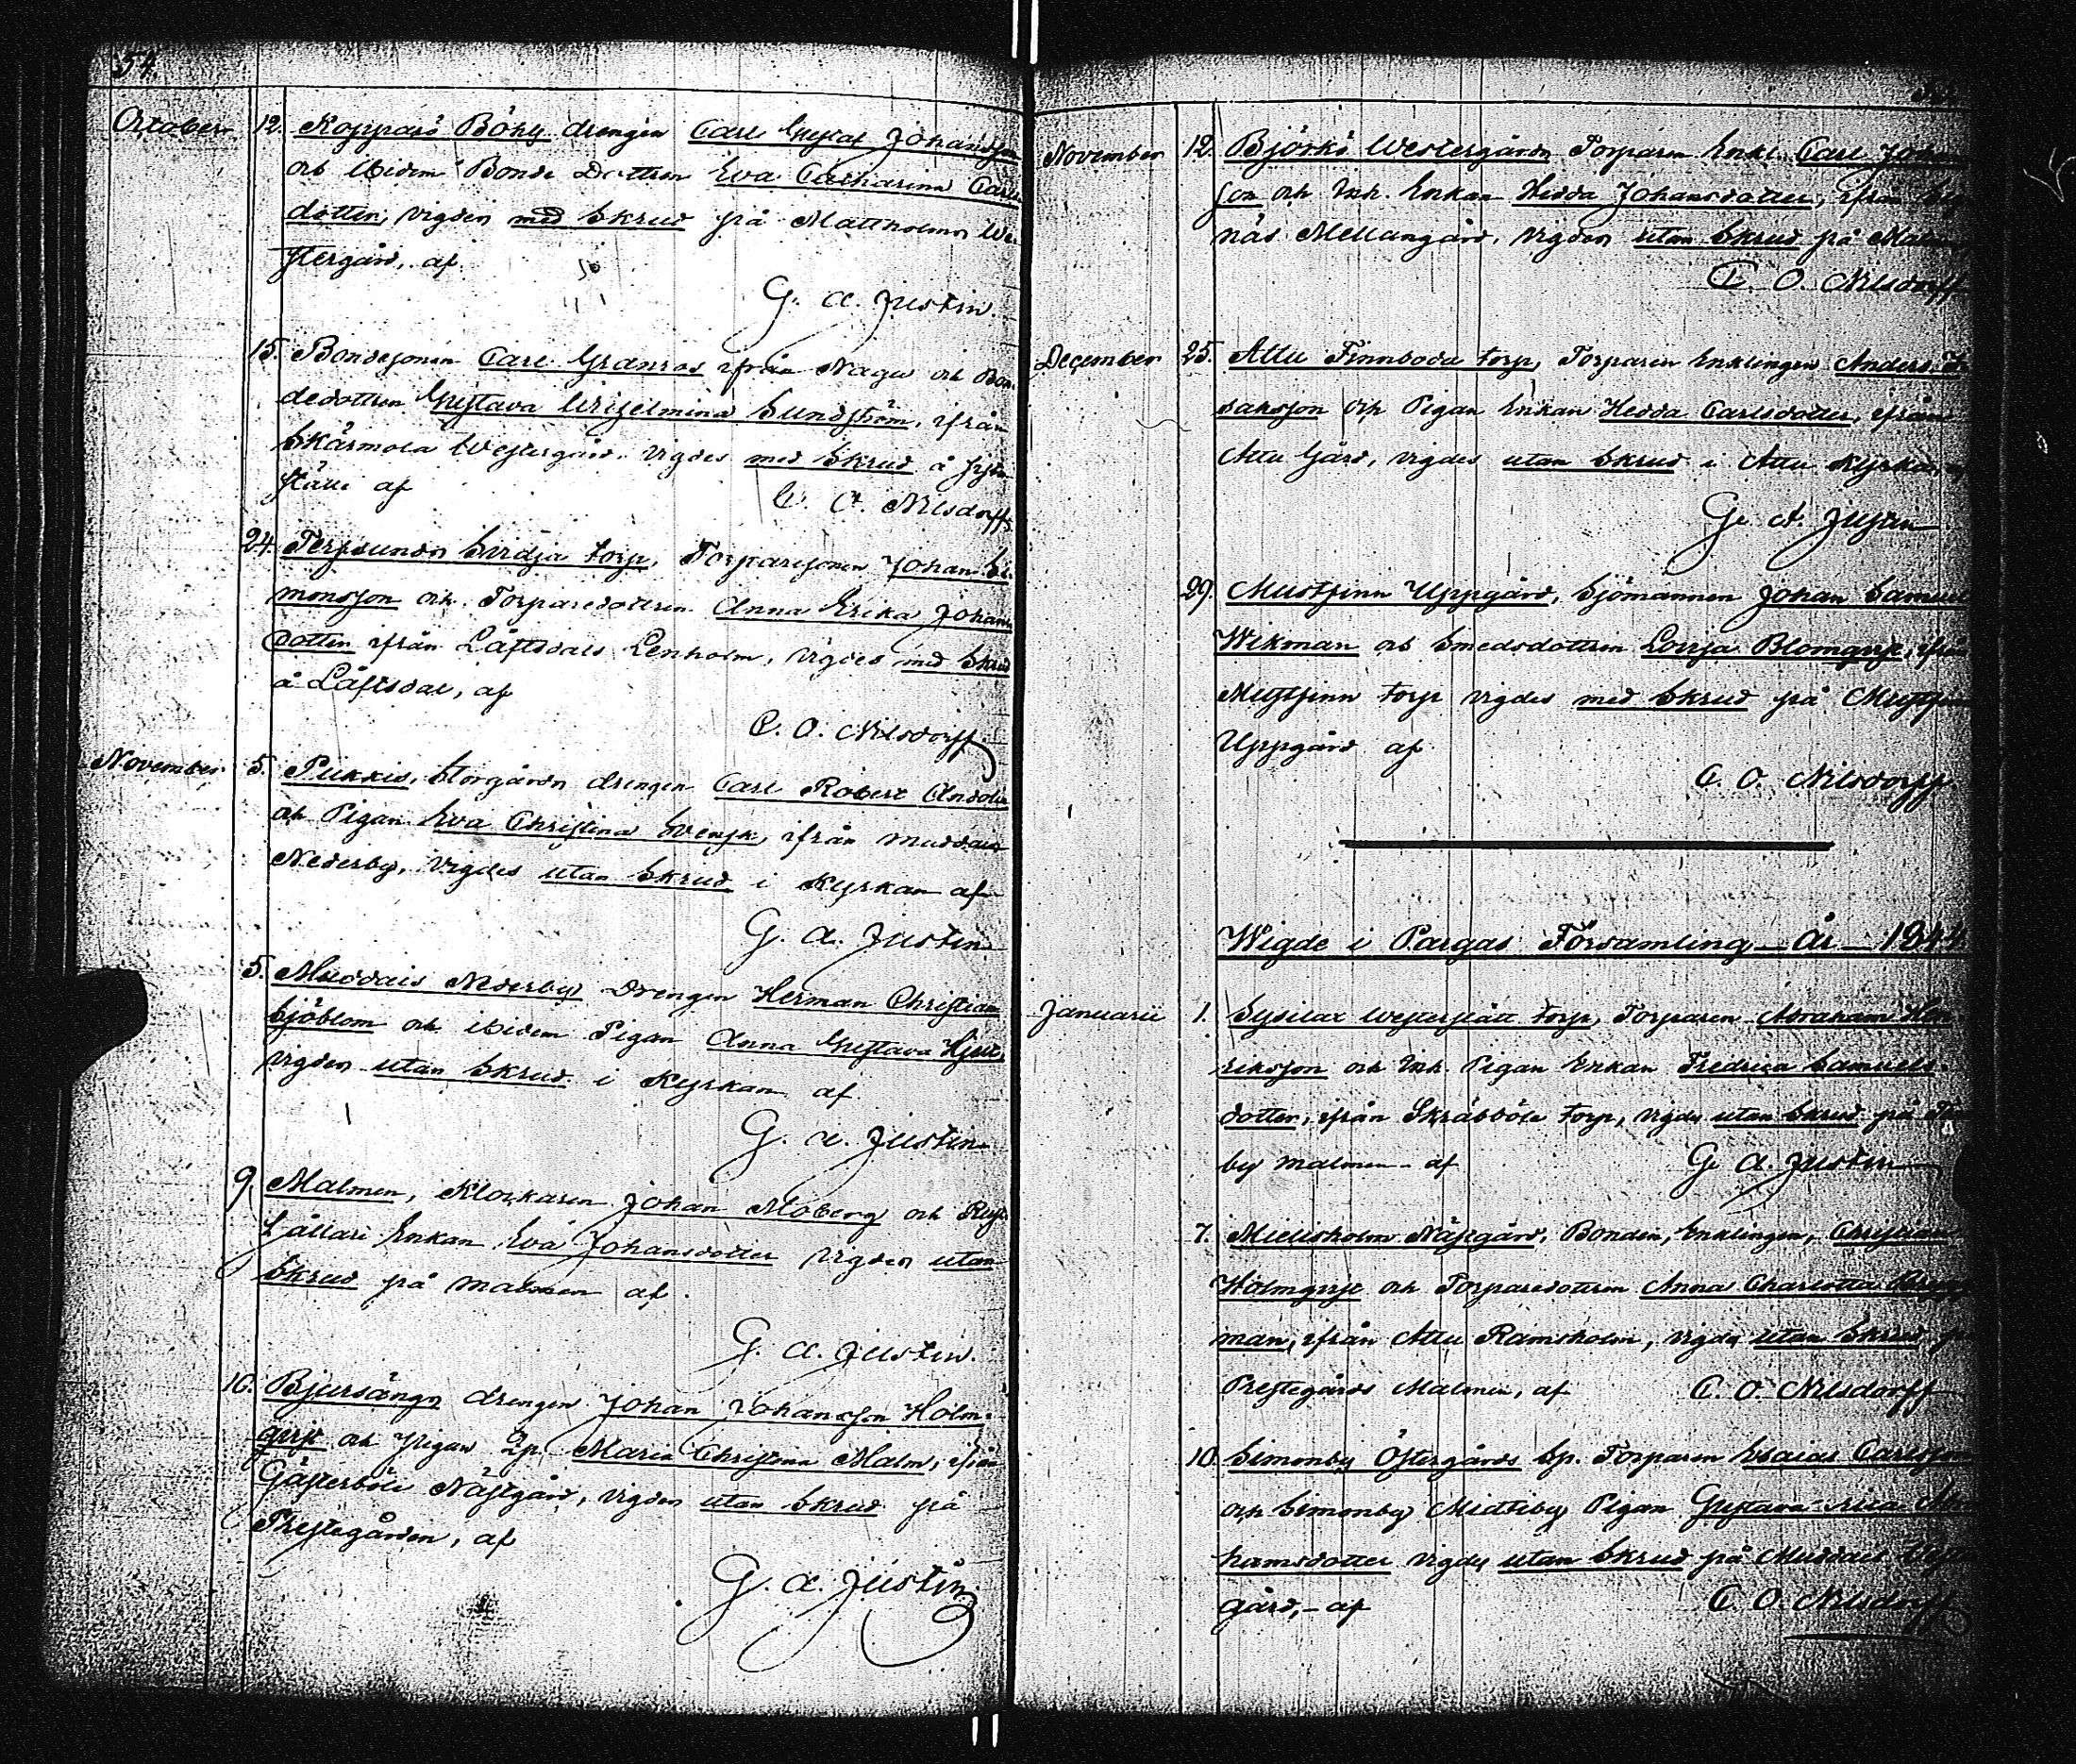 54.
October 12. Koppars Böhle drengen Carl Gustaf Johansson
och ibidem Bonde Dottren Eva Catharina Carls
dotter, vigden med Skrud på Mattholms We
stergård, af
G. A. Justin.
15. Bondesonen Carl Granros ifrån Nagu och Bon
dedottren Gustava Wilhelmina Sundström, ifrån
Skärmola Westergård. vigdes med Skrud å
ställe af C. O. Nilsdorff
24. Terfsunds Sirdja torp, Torparesonen Johan Si
monsson och Torparedottren Anna Erika Johans
dotter ifrån Läftsdals Lenholm, vigdes med Skrud
å Läftsdal, af
C. O. Nilsdorff.
November 5. Pukkis, Storgårds drengen Carl Robert
och Pigan Eva Christina Svensk, ifrån Muddais
Nederby, vigdes utan Skrud i Kyrkan af
G. A. Justin
5. Muddais Nederby Drengen Herman Christian
Sjöblom och ibidem Pigan Anna Gustava Hjelt,
vigden utan Skrud i Kyrkan af
G. A. Justin
9. Malmen, Klockaren Johan Moberg och
Enkan Eva Johansdotter vigden utan
Skrud på malmen af.
G. A. Justin.
10. Bjursängs drengen Johan Johansson Holm-
qvist och Pigan Maria Christina Malm, ifrån
Gästerböle Nästgård, vigden utan Skrud på
Prestegården, af
G. A. Justin.
November 12. Björkö Westergårds Torparen Enkl. Carl Johan
son och Inh. Enkan Hedda Johansdotter, ifrån
näs Mellangård, vigden utan Skrud på Malmen
C. O. Nilsdorff
December 25. Attu Finnboda torp, Torparen Enklingen Anders I
saksson och Pigan Enkan Hedda Carlsdotter, ifrån
Attu Gård, vigdes utan Skrud i Attu Kyrka,
G. A. Justin
29. Mustfinn Uppgård, Sjömannen Johan Samuel
Wikman och Smedsdottren Lovisa Blomqvist, ifrån
Mustfinn torp vigdes med Skrud på Mustfinn
Uppgård af
C. O. Nilsdorff
Wigde i Pargas Församling år 1844.
Januarii 1. Sysilax Westerslätt torp, Torparen Abraham Hen
riksson och Inh. Pigan Enkan Fredrica Samuels-
dotter, ifrån Skräbböle torp, vigde utan Skrud på
by malmen af G. A. Justin
7. Mielisholm Näsgård, Bonden, Enklingen, Christian
Holmqvist och Torparedottren Anna Charlotta
man, ifrån Attu Ramsholm, vigde utan Skrud
Prestegårds Malmen, af C. O. Nilsdorff
10. Simonby Östergårds Sp. Torparen Esaias Carlsson
och Simonby Mellanby Pigan Gustava Abra
hamsdotter vigde utan Skrud på Muddais
gård, af C. O. Nilsdorff